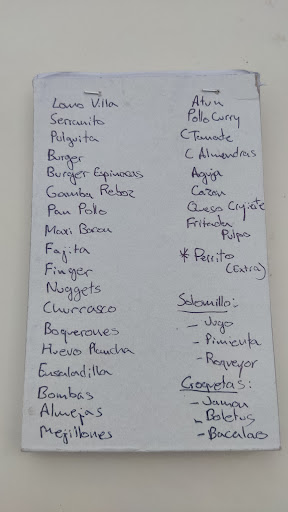 Lomo Villa
Serranito
Pulguita
Burger
Burger Espinacas
Gamba Reboz
Pan Pollo
Maxi Bacon
Fajita
Finger
Nuggets
Churrasco
Boquerones
Huevo Plancha
Ensaladilla
Bombas
Almejas
Mejillones
Atun
Pollo Curry
C Tomate
C Almendras
Aguja
Cazon
Queso Crujiente
Fritada
Pulpo
* Perrito
(Extra)
Solomillo:
- Jugo
- Pimienta
- Roquefor
Croquetas:
- Jamon
- Boletus
- Bacalao